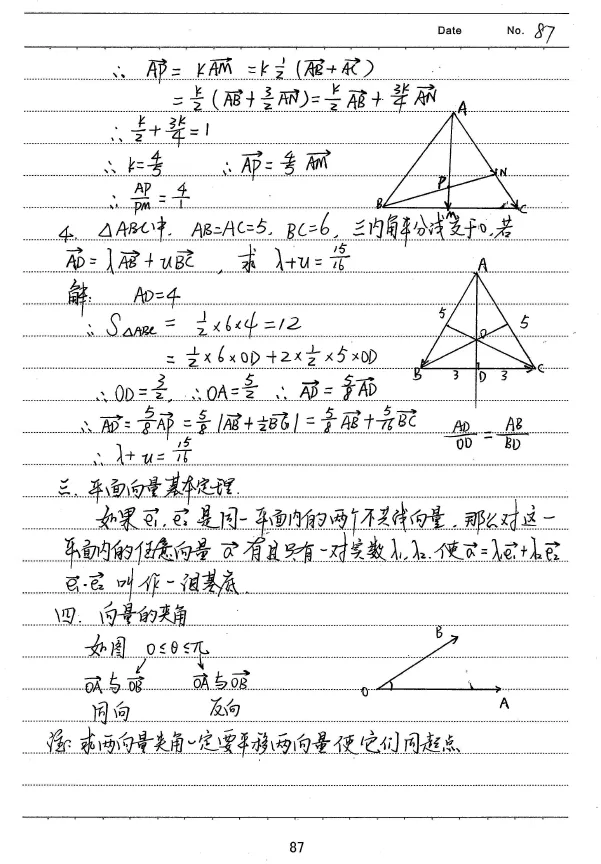 Date No. 87
∴ AP→ = KAM→ = K 1/2 (AB→ + AC→)
= K/2 (AB→ + 3/2 AN→) = K/2 AB→ + 3K/4 AN→
∴ K/2 + 3K/4 = 1
∴ K = 4/5 ∴ AP→ = 4/5 AM→
∴ AP/PM = 4/1
A
N
P
B
M
C
4. △ABC中, AB=AC=5, BC=6, 三内角平分线交于O, 若
AO→ = λAB→ + uBC→, 求 λ+u = 15/16
解: AD=4
∴ S△ABC = 1/2 × 6 × 4 = 12
= 1/2 × 6 × OD + 2 × 1/2 × 5 × OD
∴ OD = 3/2, ∴ OA = 5/2 ∴ AO→ = 5/8 AD→
∴ AO→ = 5/8 AD→ = 5/8 (AB→ + 1/2 BC→) = 5/8 AB→ + 5/16 BC→
∴ λ + u = 15/16
A
5 5
O
B 3 D 3 C
AO/OD = AB/BD
三. 平面向量基本定理.
如果 e₁→, e₂→ 是同一平面内的两个不共线向量, 那么对这一
平面内的任意向量 a→ 有且只有一对实数 λ₁, λ₂. 使 a→ = λ₁e₁→ + λ₂e₂→
e₁→, e₂→ 叫作一组基底.
四. 向量的夹角
如图 0≤θ≤π
OA→与OB→ OA→与OB→
同向 反向
B
O
A
注: 求两向量夹角一定要平移两向量使它们同起点.
87